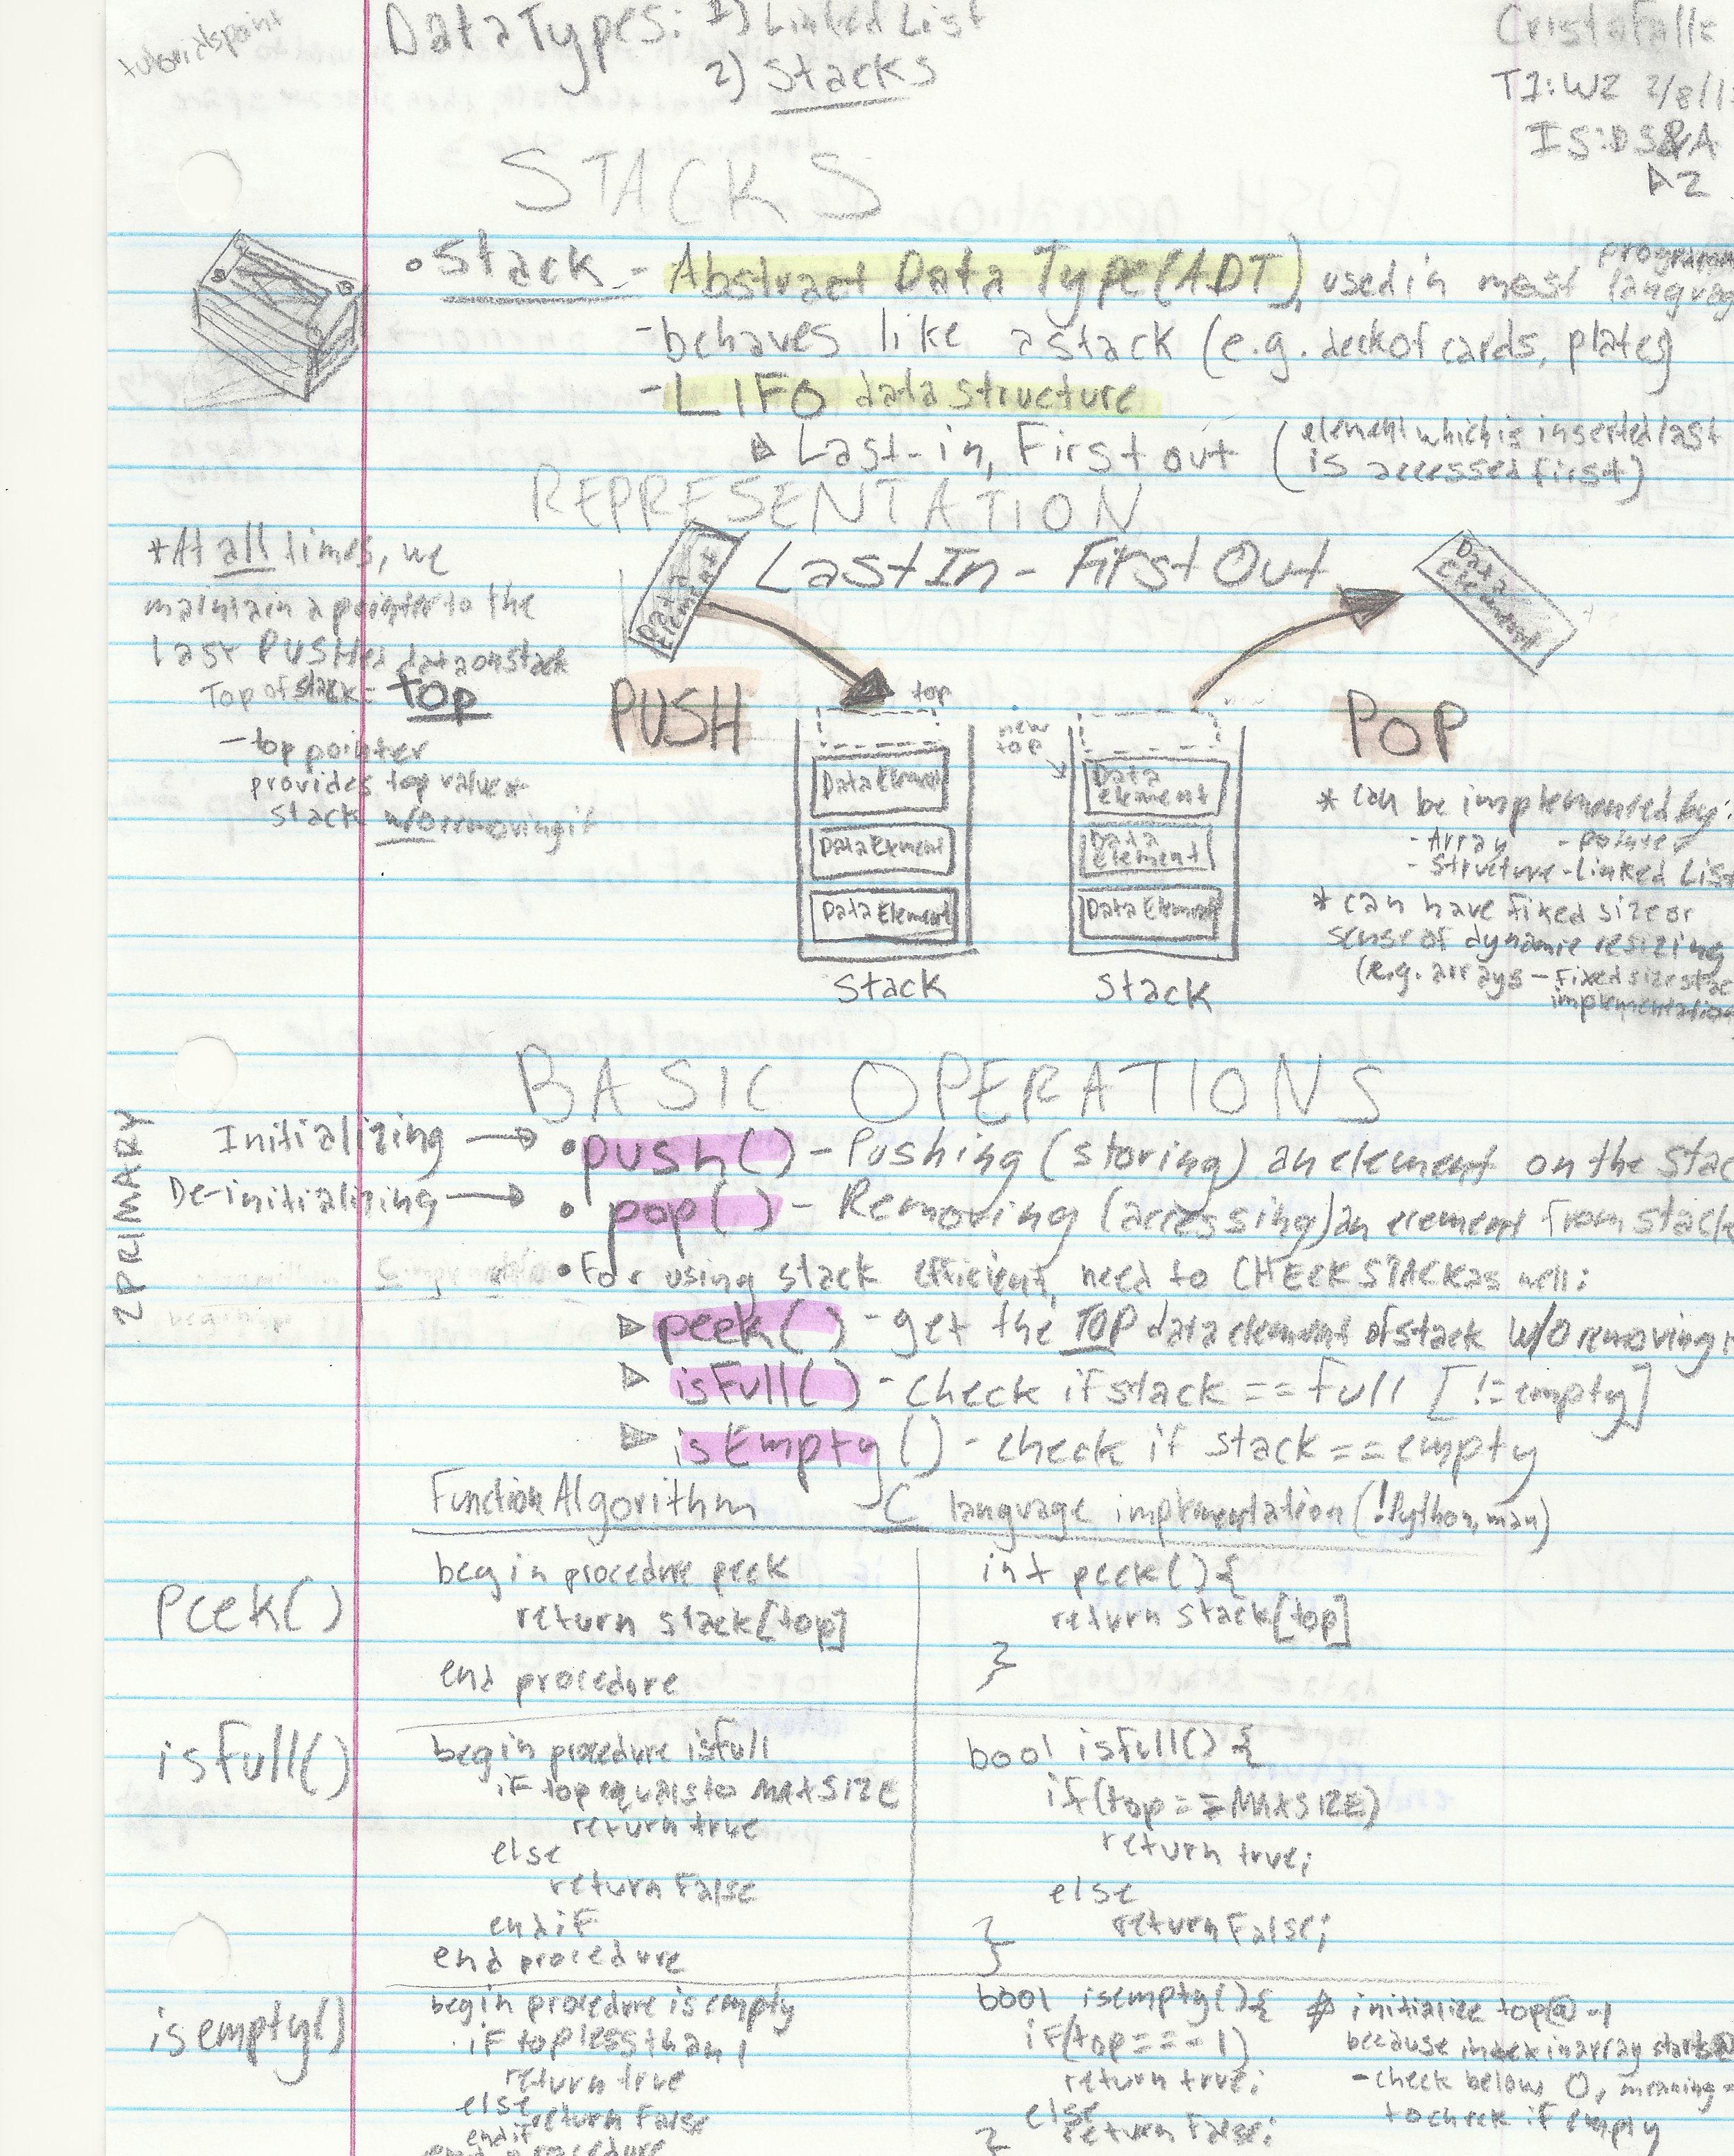 tutorialspoint
Data Types: 1) Linked List
2) Stacks
T1: W2 2/8/1
IS: DS&A
A2
STACKS
• Stack - Abstract Data Type (ADT), used in most programm
languag
- behaves like a stack (e.g. deck of cards, plates)
- LIFO data structure
▷ Last-in, First out (element which is inserted last
is accessed first)
REPRESENTATION
*At all times, we
maintain a pointer to the
last PUSHed data on stack
Top of stack = top
- top pointer
provides top value
stack w/o removing it
Last In - First Out
Data Element
Data Element
PUSH
top
new top
POP
Data Element
Data Element
Data Element
Stack
Data element
Data element
Data Element
Stack
* can be implemented by:
- Array - pointer
- Structure - Linked Lis
* can have fixed size or
sense of dynamic resizing
(e.g. arrays - Fixed size stac
implementation
BASIC OPERATIONS
2 PRIMARY
Initializing → • push() - Pushing (storing) an element on the stac
De-initializing → • pop() - Removing (accessing) an element from stack
• For using stack efficient, need to CHECK STACK as well:
▷ peek() - get the TOP data element of stack w/o removing
▷ isFull() - check if stack == full [!= empty]
▷ isEmpty() - check if stack == empty
Function Algorithm C language implementation (!Python, man)
Peek()
begin procedure peek
return stack[top]
end procedure
int peek() {
return stack[top]
}
isfull()
begin procedure isfull
if top equals to MAXSIZE
return true
else
return False
endif
end procedure
bool isfull() {
if(top == MAXSIZE)
return true;
else
return False;
}
isempty()
begin procedure isempty
if top less than 1
return true
else
return False
endif
end procedure
bool isempty() {
if(top == -1)
return true;
else
return False;
}
initialize top @ -1
because index in array starts @
- check below 0, meaning =
to check if empty